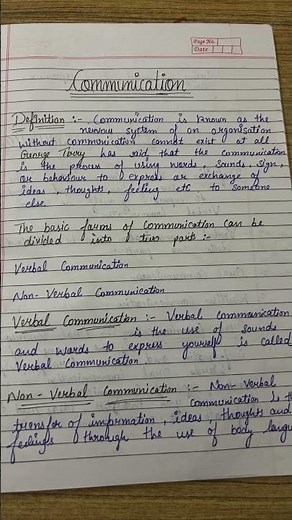 Page No.
Date
Communication
Definition :- Communication is known as the
nervous system of an organisation
without communication cannot exist at all
George Terry has said that the communication
is the process of using words, sounds, sign,
or behaviour to express or exchange of
ideas, thoughts, feeling etc to someone
else.
The basic forms of communication can be
divided into two parts :-
Verbal Communication
Non-Verbal Communication
Verbal Communication :- Verbal communication
is the use of sounds
and words to express yourself is called
Verbal Communication
Non-Verbal Communication :- Non-Verbal
Communication is th
transfer of information, ideas, thoughts and
feelings through the use of body langu